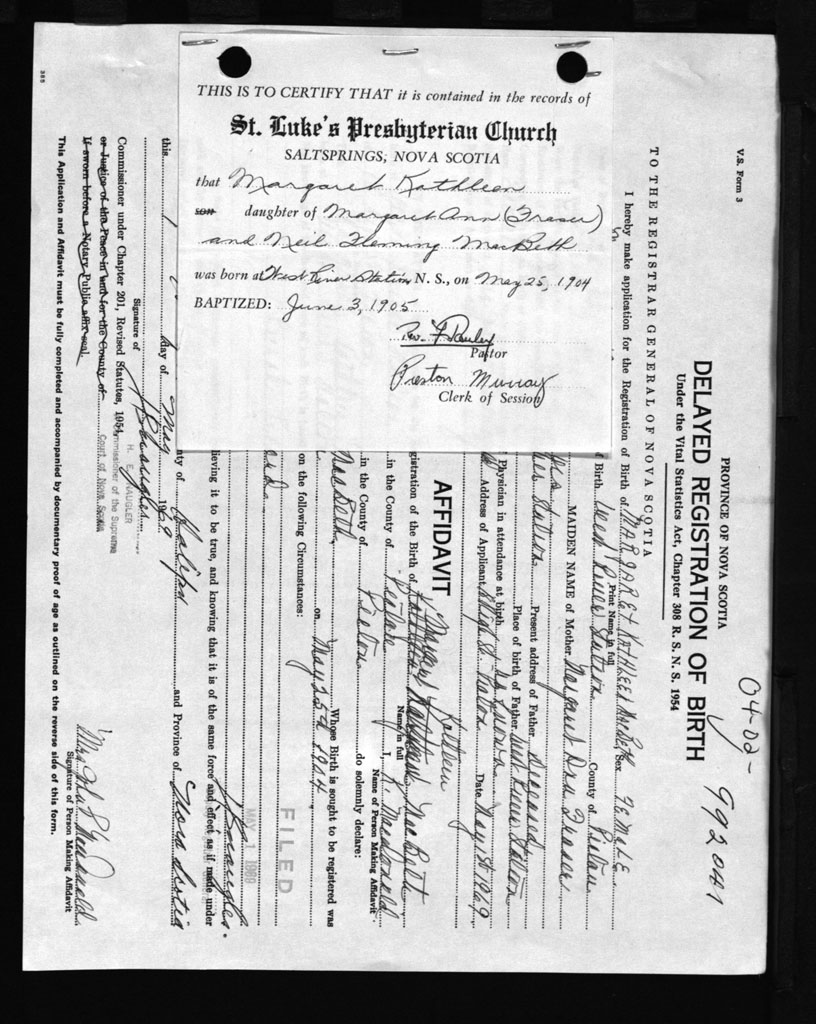 THIS IS TO CERTIFY THAT it is contained in the records of
St. Luke's Presbyterian Church
SALTSPRINGS, NOVA SCOTIA
that Margaret Kathleen
son daughter of Margaret Ann (Fraser)
and Neil Fleming MacBeth
was born at West River Station N. S., on May 25, 1904
BAPTIZED: June 3, 1905
Rev. F. Pauley
Pastor
Preston Murray
Clerk of Session
04-02- 992041
V.S. Form 3
PROVINCE OF NOVA SCOTIA
DELAYED REGISTRATION OF BIRTH
Under the Vital Statistics Act, Chapter 308 R. S. N. S. 1954
TO THE REGISTRAR GENERAL OF NOVA SCOTIA
I hereby make application for the Registration of Birth of MARGARET KATHLEEN MacBeth Sex FEMALE
Print Name in full
Birth West River Station County of Pictou
MAIDEN NAME of Mother Margaret Ann Fraser
Station Present address of Father Deceased
Place of birth of Father West River Station
Physician in attendance at birth
Address of Applicant Date May 1st 1969
AFFIDAVIT
I, MacDonald
Name of Person Making Affidavit
Margaret Kathleen
gistration of the Birth of MacBeth
Name in full
in the County of do solemnly declare:
in the County of Pictou
MacBeth Whose Birth is sought to be registered was
on May 25th 1904
on the following Circumstances:
FILED
MAY 1 1969
lieving it to be true, and knowing that it is of the same force and effect as if made under
ty of Halifax and Province of Nova Scotia
this 1 day of May 1969
Signature of
H. E. NAUGLER
Commissioner of the Supreme
Court of Nova Scotia
Commissioner under Chapter 201, Revised Statutes, 1954,
or Justice of the Peace in and for the County of
If sworn before a Notary Public affix seal.
Signature of Person Making Affidavit
This Application and Affidavit must be fully completed and accompanied by documentary proof of age as outlined on the reverse side of this form.